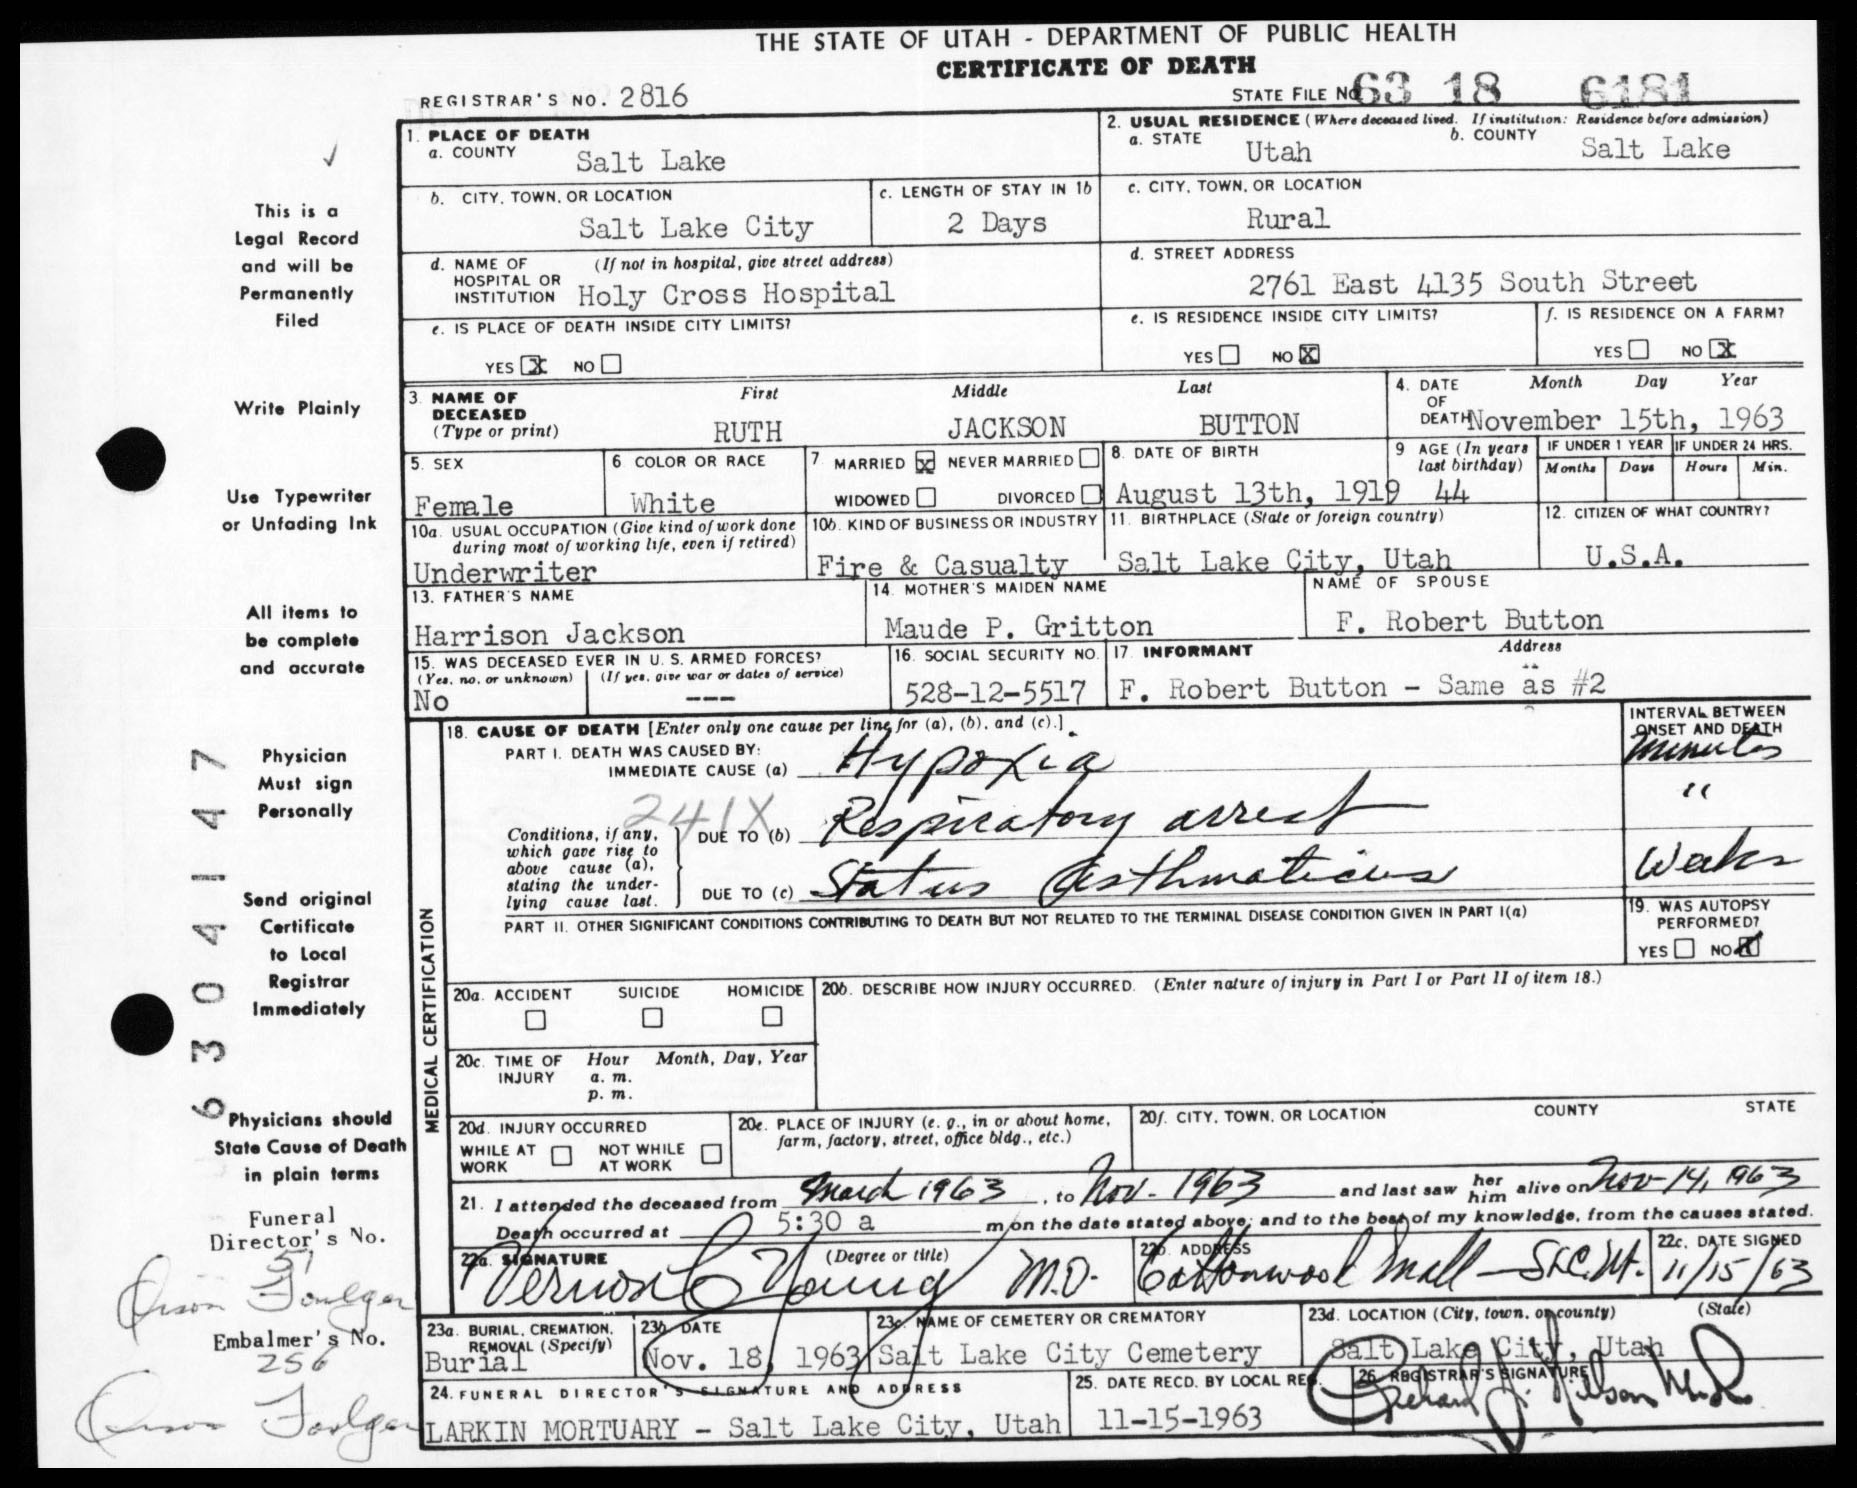 THE STATE OF UTAH - DEPARTMENT OF PUBLIC HEALTH
CERTIFICATE OF DEATH
REGISTRAR'S NO. 2816
STATE FILE NO. 63 18 6181
1. PLACE OF DEATH
a. COUNTY Salt Lake
2. USUAL RESIDENCE (Where deceased lived. If institution: Residence before admission)
a. STATE Utah b. COUNTY Salt Lake
b. CITY, TOWN, OR LOCATION Salt Lake City
c. LENGTH OF STAY IN 1b 2 Days
c. CITY, TOWN, OR LOCATION Rural
d. NAME OF HOSPITAL OR INSTITUTION (If not in hospital, give street address) Holy Cross Hospital
d. STREET ADDRESS 2761 East 4135 South Street
e. IS PLACE OF DEATH INSIDE CITY LIMITS?
YES X NO
e. IS RESIDENCE INSIDE CITY LIMITS?
YES NO X
f. IS RESIDENCE ON A FARM?
YES NO X
3. NAME OF DECEASED (Type or print)
First Middle Last
RUTH JACKSON BUTTON
4. DATE OF DEATH Month Day Year
November 15th, 1963
5. SEX Female
6. COLOR OR RACE White
7. MARRIED X NEVER MARRIED
WIDOWED DIVORCED
8. DATE OF BIRTH August 13th, 1919
9. AGE (In years last birthday) 44
IF UNDER 1 YEAR Months Days
IF UNDER 24 HRS. Hours Min.
10a. USUAL OCCUPATION (Give kind of work done during most of working life, even if retired)
Underwriter
10b. KIND OF BUSINESS OR INDUSTRY
Fire & Casualty
11. BIRTHPLACE (State or foreign country)
Salt Lake City, Utah
12. CITIZEN OF WHAT COUNTRY?
U.S.A.
13. FATHER'S NAME
Harrison Jackson
14. MOTHER'S MAIDEN NAME
Maude P. Gritton
NAME OF SPOUSE
F. Robert Button
15. WAS DECEASED EVER IN U. S. ARMED FORCES?
(Yes, no, or unknown) (If yes, give war or dates of service)
No ---
16. SOCIAL SECURITY NO.
528-12-5517
17. INFORMANT Address
F. Robert Button - Same as #2
MEDICAL CERTIFICATION
18. CAUSE OF DEATH [Enter only one cause per line for (a), (b), and (c).]
INTERVAL BETWEEN ONSET AND DEATH
PART I. DEATH WAS CAUSED BY:
IMMEDIATE CAUSE (a) Hypoxia Minutes
241X
Conditions, if any, which gave rise to above cause (a), stating the underlying cause last.
DUE TO (b) Respiratory arrest "
DUE TO (c) Status Asthmaticus Weeks
PART II. OTHER SIGNIFICANT CONDITIONS CONTRIBUTING TO DEATH BUT NOT RELATED TO THE TERMINAL DISEASE CONDITION GIVEN IN PART I(a)
19. WAS AUTOPSY PERFORMED?
YES NO X
20a. ACCIDENT SUICIDE HOMICIDE
20b. DESCRIBE HOW INJURY OCCURRED. (Enter nature of injury in Part I or Part II of item 18.)
20c. TIME OF INJURY Hour Month, Day, Year
a. m.
p. m.
20d. INJURY OCCURRED
WHILE AT WORK NOT WHILE AT WORK
20e. PLACE OF INJURY (e. g., in or about home, farm, factory, street, office bldg., etc.)
20f. CITY, TOWN, OR LOCATION COUNTY STATE
21. I attended the deceased from March 1963, to Nov. 1963 and last saw her him alive on Nov-14, 1963
Death occurred at 5:30 a m on the date stated above; and to the best of my knowledge, from the causes stated.
22a. SIGNATURE (Degree or title)
Vernon C Young M.D.
22b. ADDRESS
Cottonwood Mall - SLC. Ut.
22c. DATE SIGNED
11/15/63
23a. BURIAL, CREMATION, REMOVAL (Specify)
Burial
23b. DATE
Nov. 18, 1963
23c. NAME OF CEMETERY OR CREMATORY
Salt Lake City Cemetery
23d. LOCATION (City, town, or county) (State)
Salt Lake City, Utah
24. FUNERAL DIRECTOR'S SIGNATURE AND ADDRESS
LARKIN MORTUARY - Salt Lake City, Utah
25. DATE RECD. BY LOCAL REG.
11-15-1963
26. REGISTRAR'S SIGNATURE
This is a
Legal Record
and will be
Permanently
Filed
Write Plainly
Use Typewriter
or Unfading Ink
All items to
be complete
and accurate
Physician
Must sign
Personally
Send original
Certificate
to Local
Registrar
Immediately
Physicians should
State Cause of Death
in plain terms
Funeral
Director's No.
51
Orson Foulger
Embalmer's No.
256
Orson Foulger
6 3 0 4 1 1 4 7